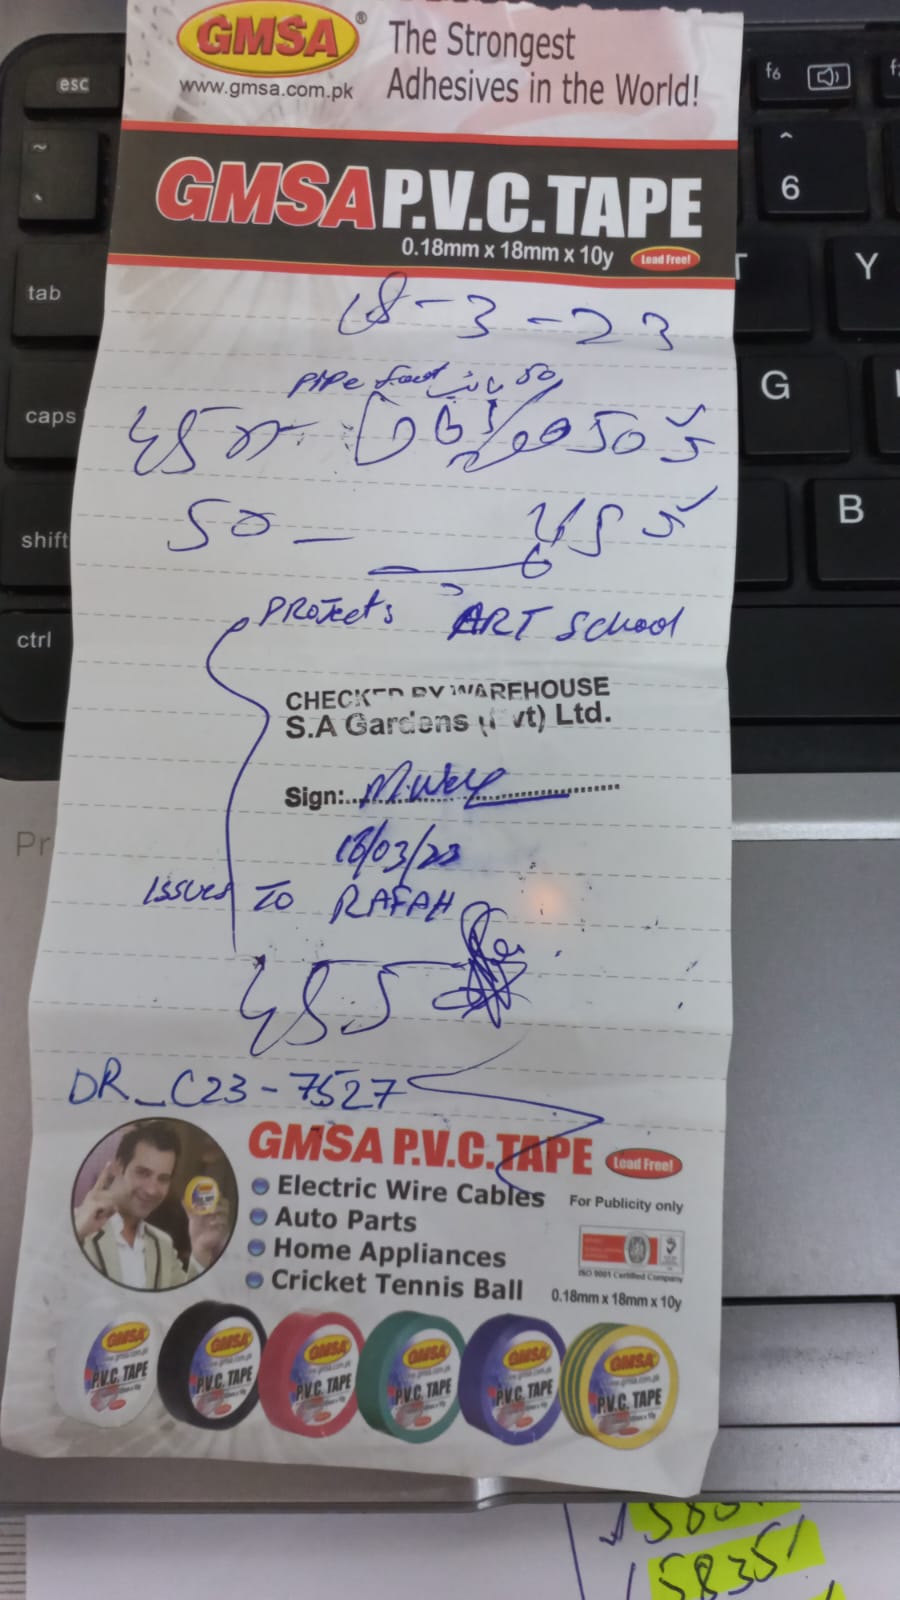 GMSA®
www.gmsa.com.pk
The Strongest
Adhesives in the World!
GMSA P.V.C.TAPE
0.18mm x 18mm x 10y Lead Free!
18-3-23
PiPe
50 -
Projects ART School
CHECKED BY WAREHOUSE
S.A Gardens (Pvt) Ltd.
Sign:
18/03/23
Issues To RAFAH
DR_C23-7527
GMSA P.V.C.TAPE Lead Free!
Electric Wire Cables
For Publicity only
Auto Parts
Home Appliances
Cricket Tennis Ball
ISO 9001 Certified Company
0.18mm x 18mm x 10y
GMSA P.V.C. TAPE
GMSA P.V.C. TAPE
GMSA P.V.C. TAPE
GMSA P.V.C. TAPE
GMSA P.V.C. TAPE
GMSA P.V.C. TAPE
esc
f6
~
^
6
tab
T
Y
caps
G
shift
B
ctrl
5835/